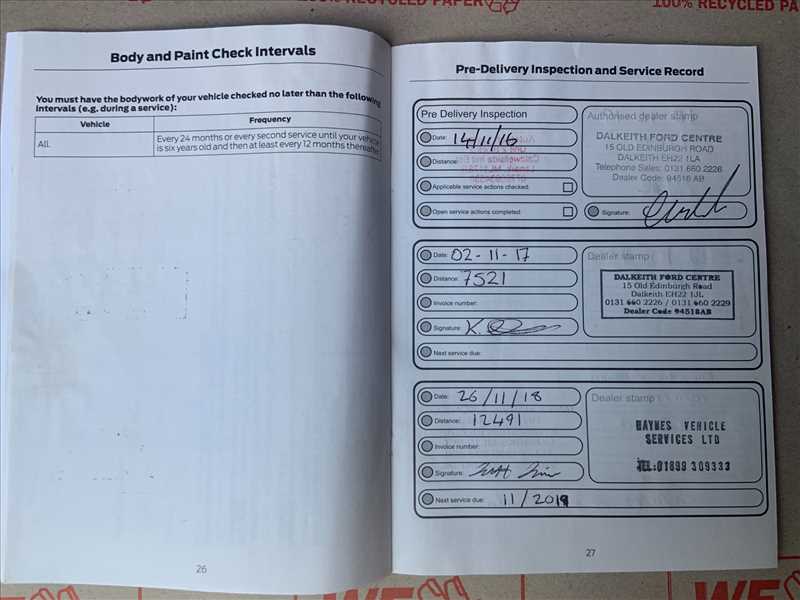 100% RECYCLED PAPER
100% RECYCLED PA
Body and Paint Check Intervals
You must have the bodywork of your vehicle checked no later than the following
intervals (e.g. during a service):
Vehicle Frequency
All. Every 24 months or every second service until your vehicle
is six years old and then at least every 12 months thereafter.
26
Pre-Delivery Inspection and Service Record
Pre Delivery Inspection
Date: 14/11/16
Distance:
Applicable service actions checked:
Open service actions completed:
Authorised dealer stamp
DALKEITH FORD CENTRE
15 OLD EDINBURGH ROAD
DALKEITH EH22 1LA
Telephone Sales: 0131 660 2226
Dealer Code: 94518 AB
Signature:
Date: 02-11-17
Distance: 7521
Invoice number:
Signature:
Next service due:
Dealer stamp
DALKEITH FORD CENTRE
15 Old Edinburgh Road
Dalkeith EH22 1JL
0131 660 2226 / 0131 660 2229
Dealer Code 94518AB
Date: 26/11/18
Distance: 12491
Invoice number:
Signature:
Next service due: 11/2019
Dealer stamp
HAYNES VEHICLE
SERVICES LTD
TEL:01899 309333
27